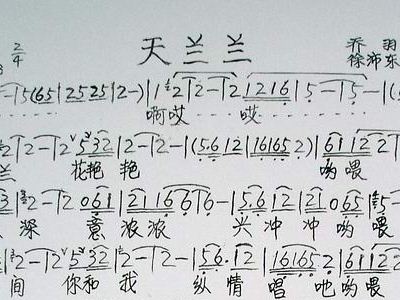 2/4 天兰兰 乔羽
徐沛东
15(65|2525|2-)|1 2|2-2|1216|5-5-|(5
啊哎 哎
2|2-2 5 32|2-2-|(5.6 12|16165 2)|6112 2
花艳 艳 哟喂
|2-2 061|21666-|5.6 12|21065|5-
深 意 浓浓 兴冲 冲哟喂
|2-2 5 32|2-2-|5.6.12|16165 2|61122
间 你和 我 纵情 唱吔哟喂